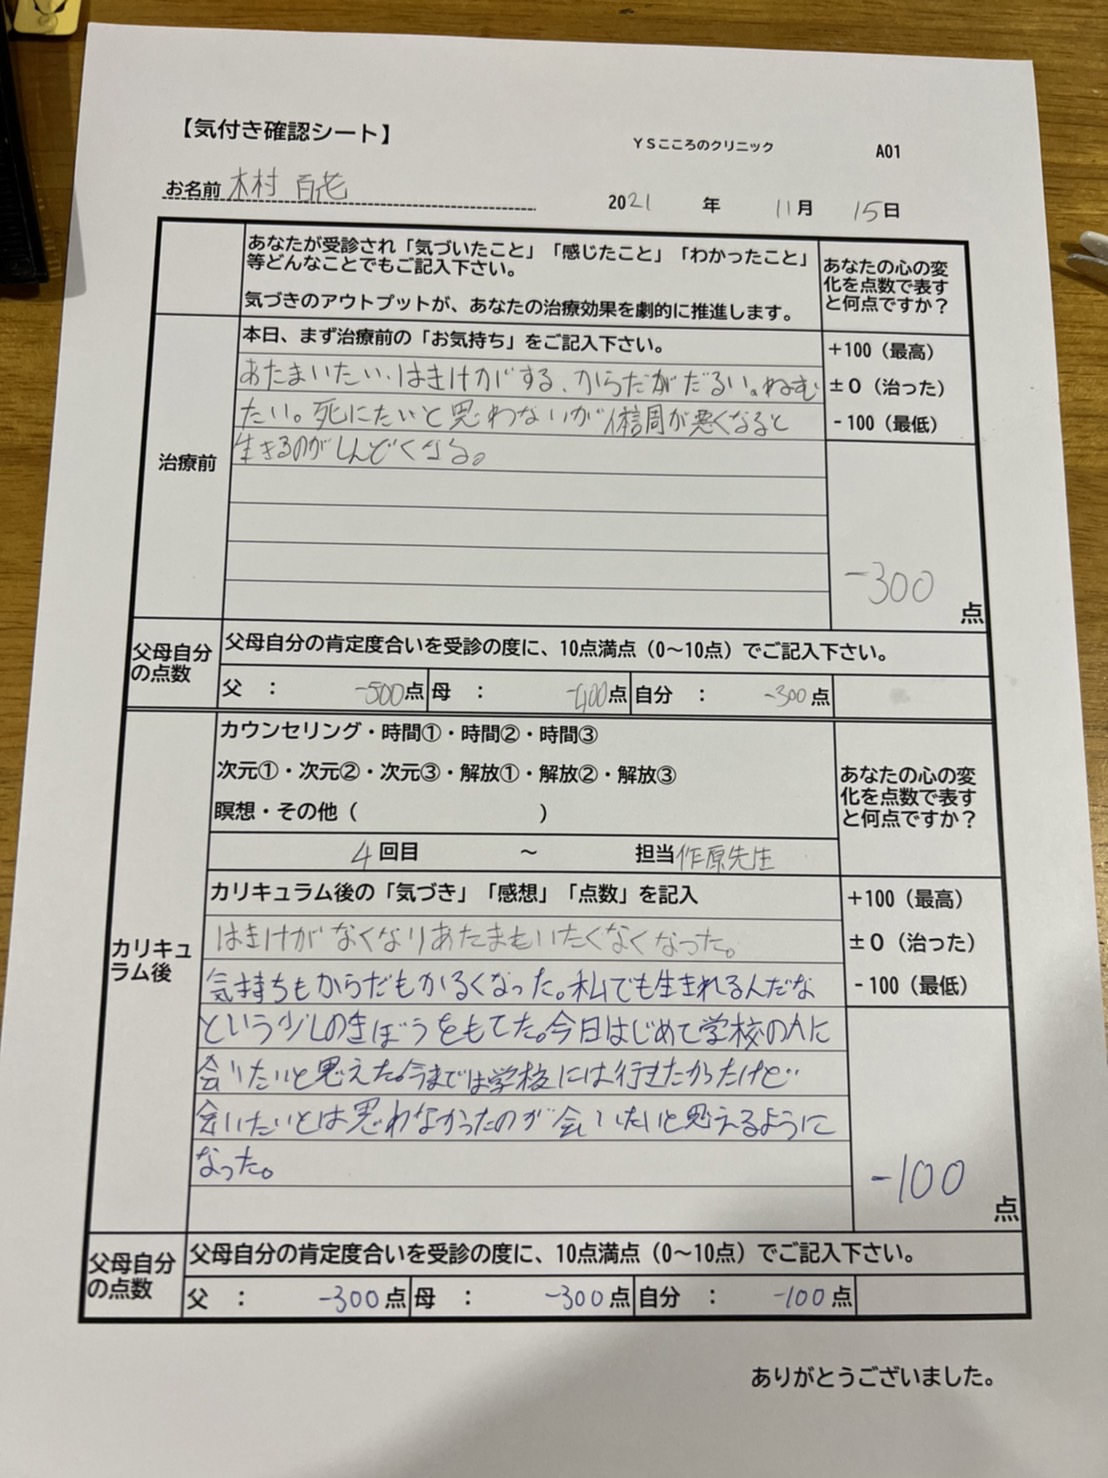 【気付き確認シート】
YSこころのクリニック
A01
お名前 木村 百花
2021年 11月 15日
あなたが受診され「気づいたこと」「感じたこと」「わかったこと」
等どんなことでもご記入下さい。
気づきのアウトプットが、あなたの治療効果を劇的に推進します。
あなたの心の変
化を点数で表す
と何点ですか？
治療前
本日、まず治療前の「お気持ち」をご記入下さい。
あたまいたい、はきけがする、からだがだるい。ねむ
たい。死にたいと思わないが体調が悪くなると
生きるのがしんどくなる。
+100（最高）
±0（治った）
-100（最低）
-300点
父母自分
の点数
父母自分の肯定度合いを受診の度に、10点満点（0～10点）でご記入下さい。
父 ： -500点 母 ： -400点 自分 ： -300点
カリキュ
ラム後
カウンセリング・時間①・時間②・時間③
次元①・次元②・次元③・解放①・解放②・解放③
瞑想・その他（ ）
4回目 ～ 担当 作原先生
あなたの心の変
化を点数で表す
と何点ですか？
カリキュラム後の「気づき」「感想」「点数」を記入
はきけがなくなりあたまもいたくなくなった。
気持ちもからだもかるくなった。私でも生きれるんだな
という少しのきぼうをもてた。今日はじめて学校の人に
会いたいと思えた。今までは学校には行きたかったけど
会いたいとは思わなかったのが会いたいと思えるように
なった。
+100（最高）
±0（治った）
-100（最低）
-100点
父母自分
の点数
父母自分の肯定度合いを受診の度に、10点満点（0～10点）でご記入下さい。
父 ： -300点 母 ： -300点 自分 ： -100点
ありがとうございました。